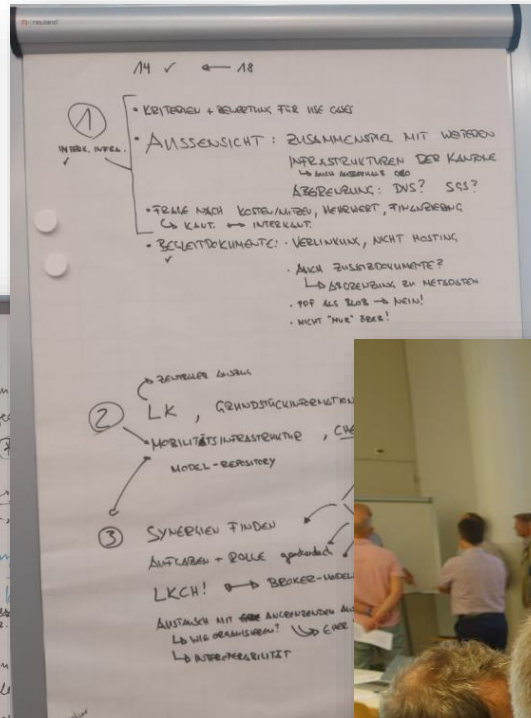 neuland
14 ✓ ← 18
① • KRITERIEN + BEWERTUNG FÜR USE CASES
INTERK. INFRA. ✓
• AUSSENSICHT: ZUSAMMENSPIEL MIT WEITEREN
INFRASTRUKTUREN DER KANTONE
↳ AUCH AUSSERHALB GEO
ABGRENZUNG: DVS? SGS?
• FRAGE NACH KOSTEN/NUTZEN, MEHRWERT, FINANZIERUNG
↳ KANT. ↔ INTERKANT.
• BEGLEITDOKUMENTE: • VERLINKUNG, NICHT HOSTING
✓
• AUCH ZUSATZDOKUMENTE?
↳ ABGRENZUNG ZU METADATEN
• PDF ALS BLOB → NEIN!
• NICHT "NUR" ÖREB!
ZENTRALER
② LK, GRUNDSTÜCKINFORMATION
MOBILITÄTSINFRASTRUKTUR,
MODEL-REPOSITORY
③ SYNERGIEN FINDEN
AUFGABEN + ROLLE
LKCH! ↔ BROKER-MODEL
AUSTAUSCH MIT ANGRENZENDEN
↳ WIE ORGANISIEREN? ↳ EHER
↳ INTEROPERABILITÄT